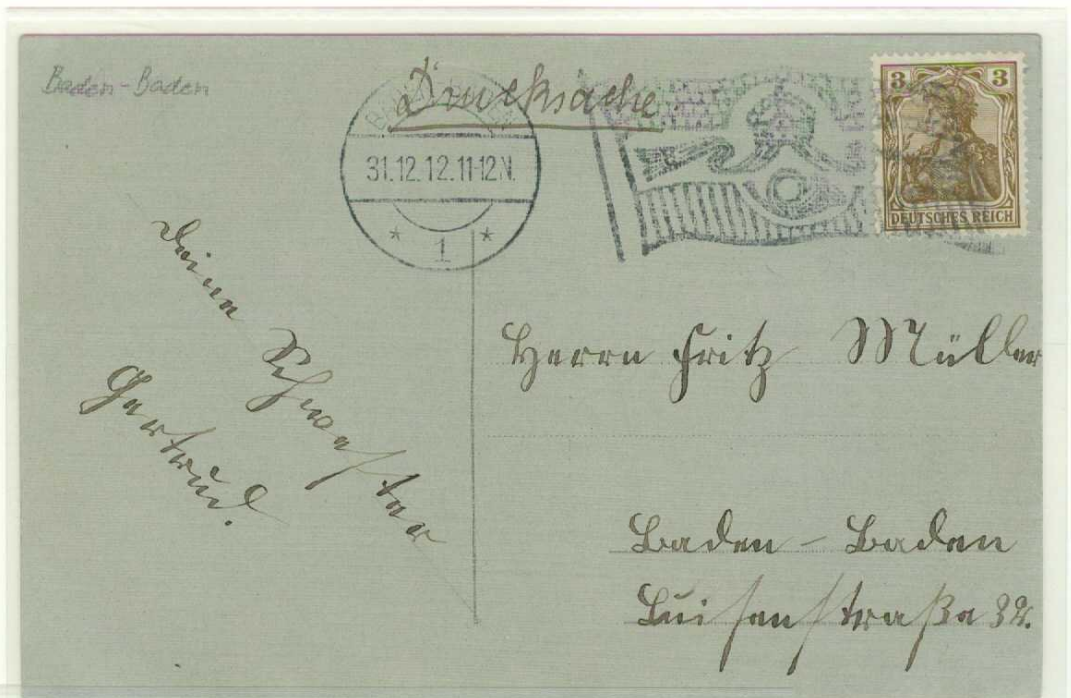 Baden-Baden
Drucksache
BADEN-BADEN
31.12.12.11-12N.
* 1 *
3 3
DEUTSCHES REICH
Deine Schwester
Gertrud.
Herrn Fritz Müller
Baden-Baden
Luisenstraße